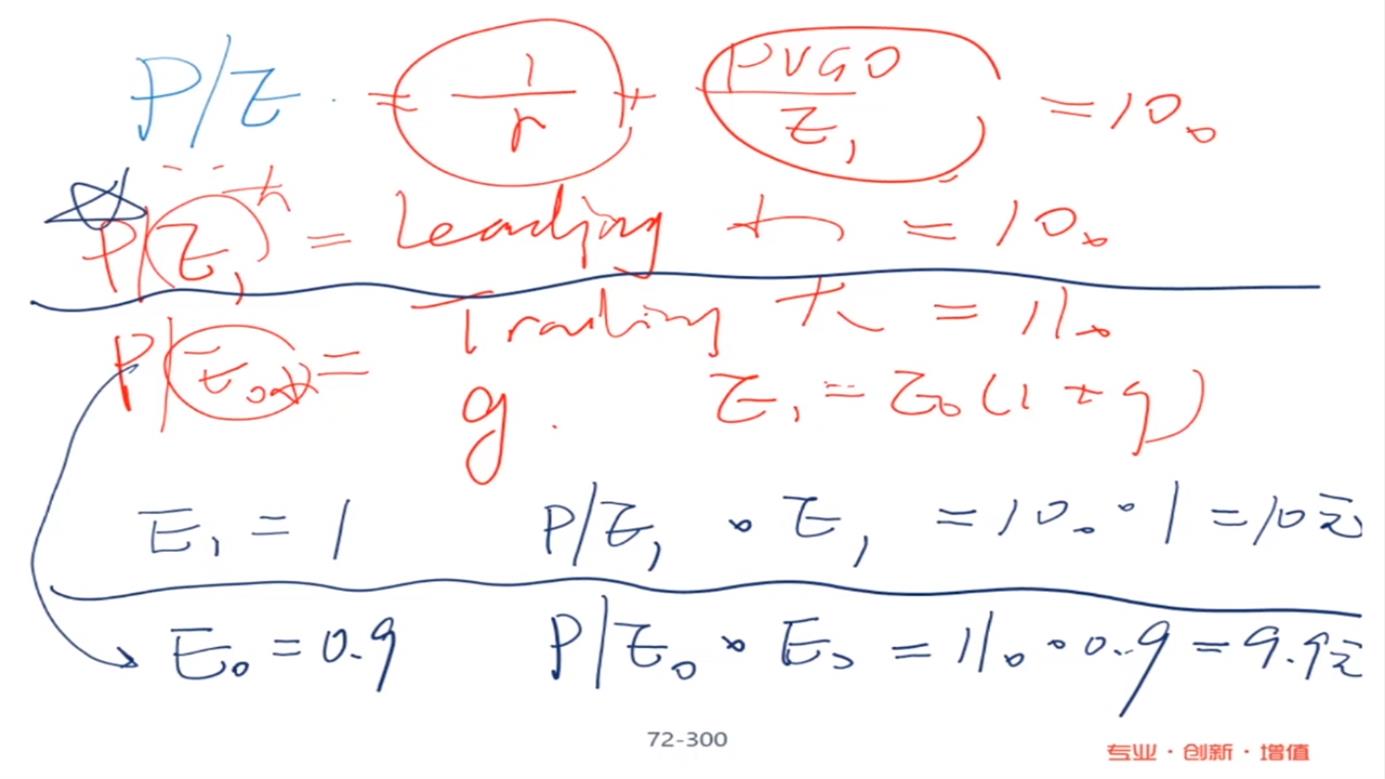 P/E = 1/r + PVGO/E₁ = 10。
P/E₁ = Leading = 10。
P/E₀ = Trailing = 11。
g. E₁ = E₀(1+g)
E₁ = 1 P/E₁ · E₁ = 10。· 1 = 10元
E₀ = 0.9 P/E₀ · E₀ = 11。· 0.9 = 9.9元
72-300
专业·创新·增值